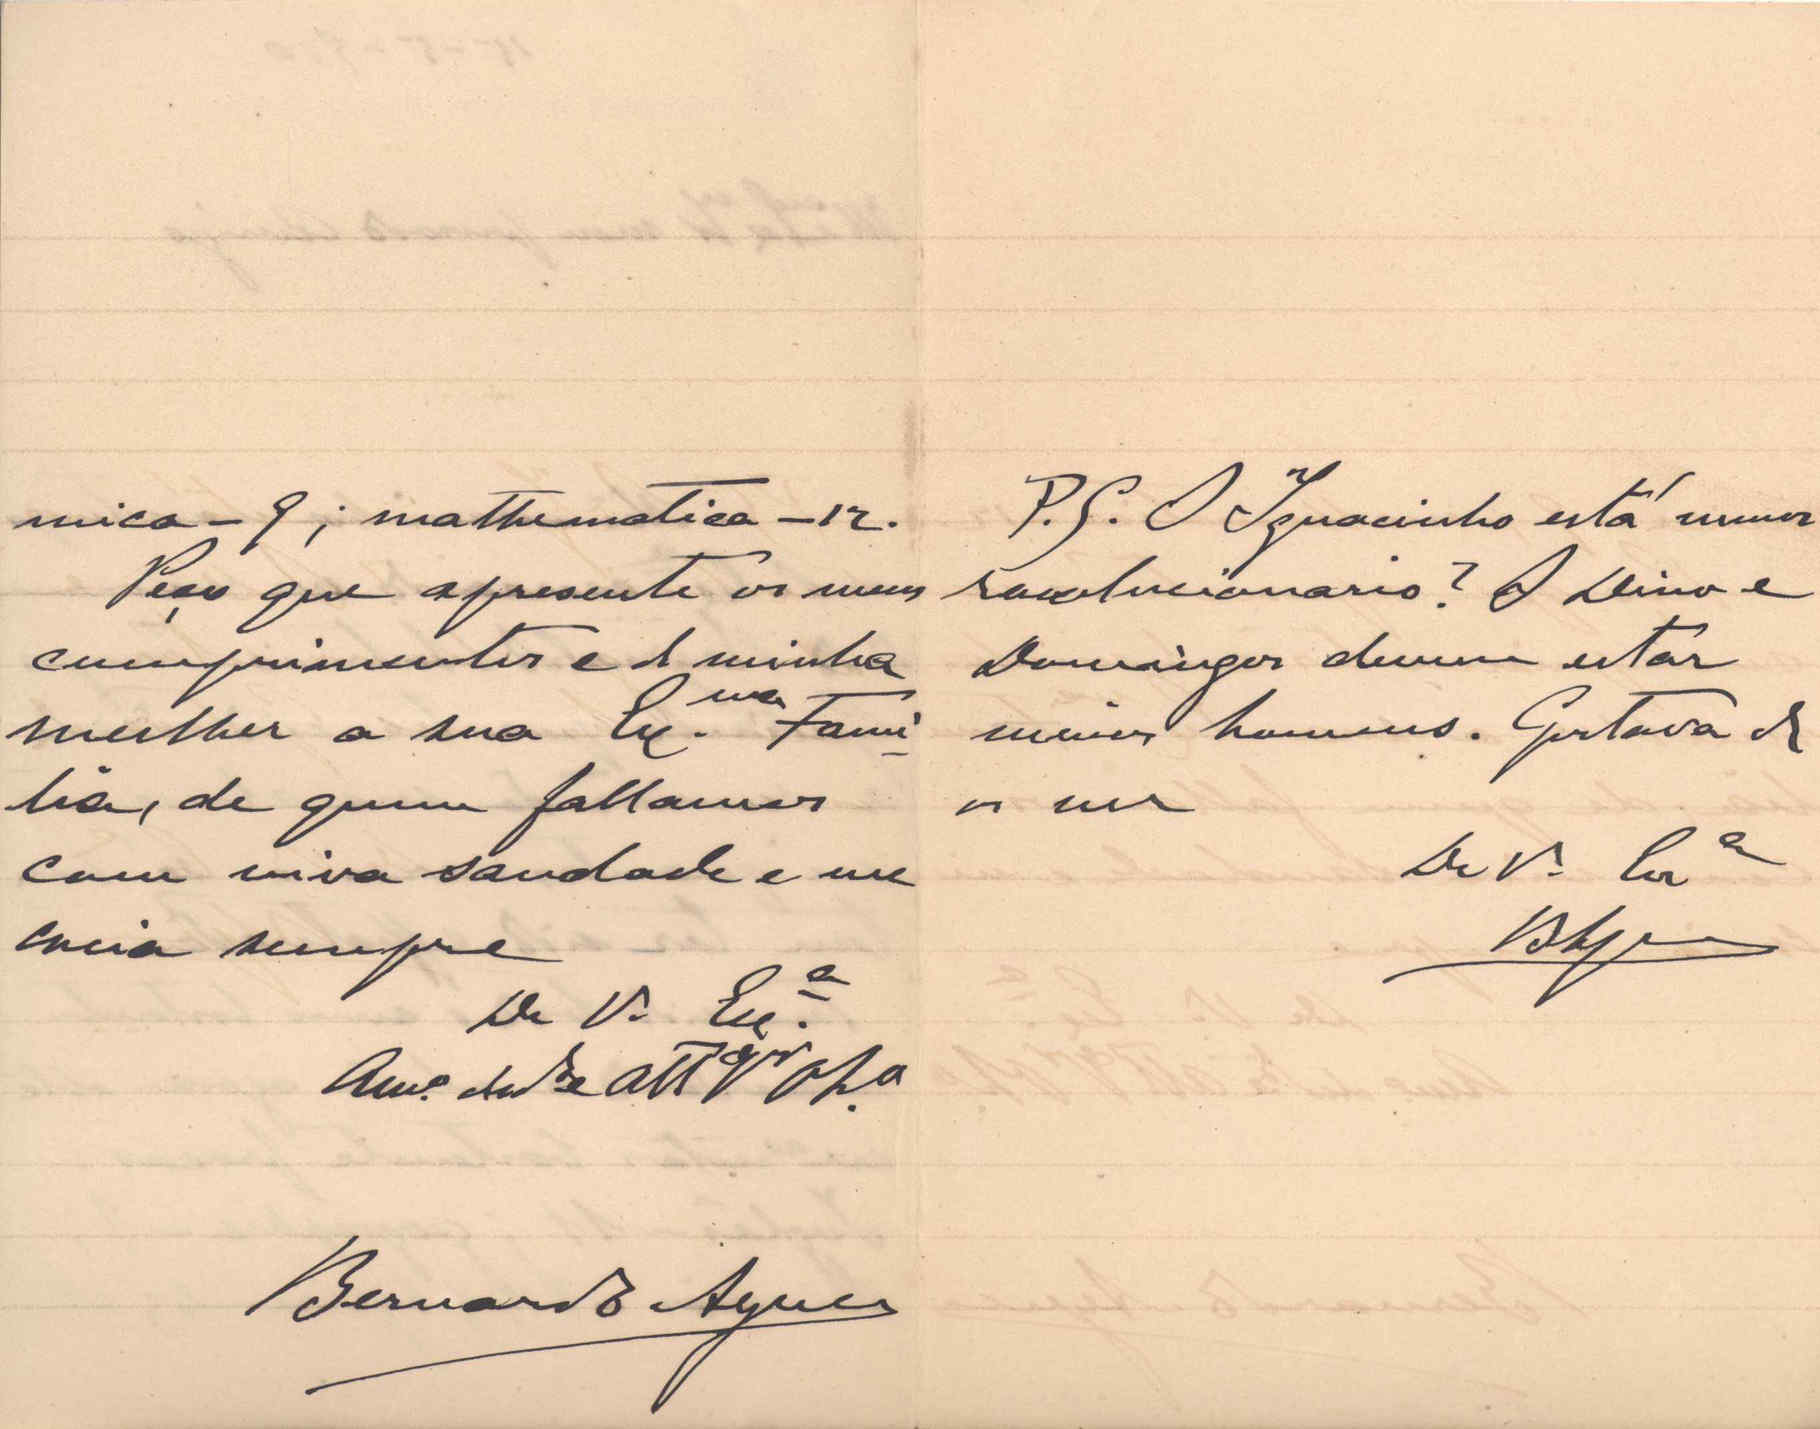 mica – 9; mathematica – 12.
Peço que apresente os meus
cumprimentos e de minha
mulher a sua Ex.ma Fami-
lia, de quem fallamos
com viva saudade e me
creia sempre
De V. Ex.a
Am.o att.o
Bernardo Ayres
P.S. O Ignacinho está menos
revolucionario? O Dino e
Domingos devem estar
uns homens. Gostava de
os ver
De V. Ex.a
BAyres